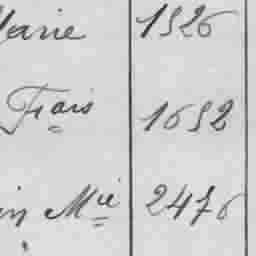 Marie 1926
Frois 1692
in Mie 2476